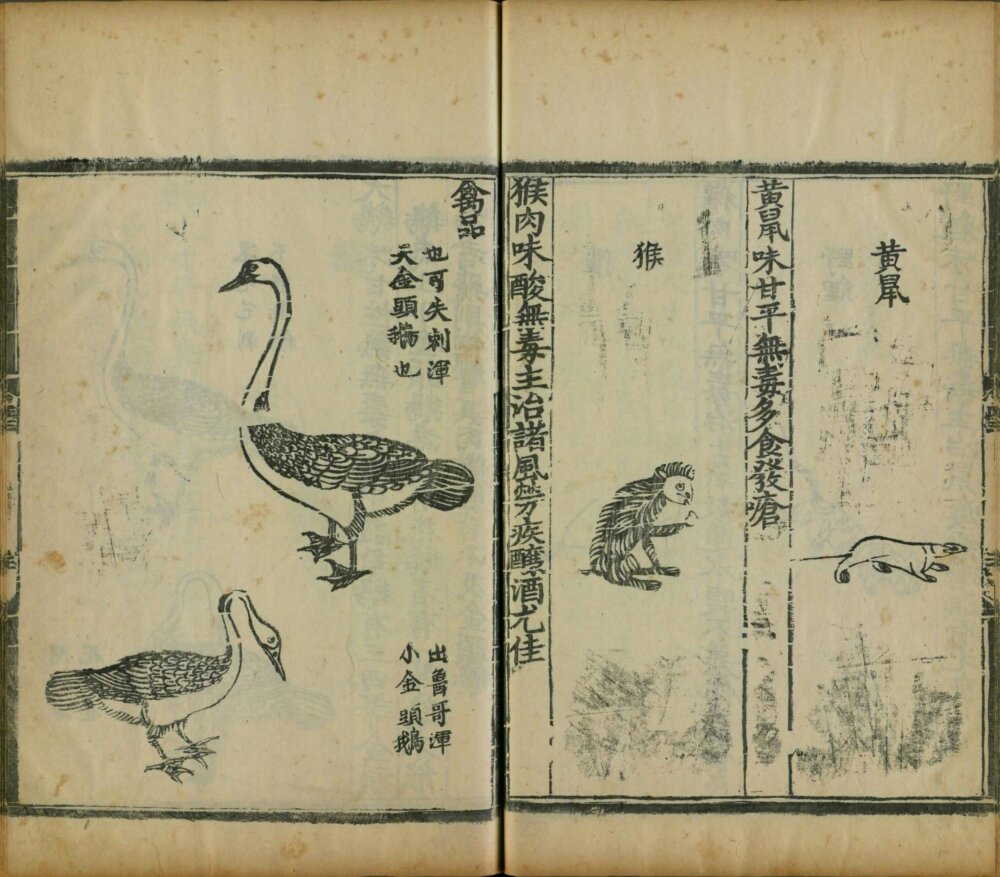 黄鼠
黄鼠味甘平無毒多食發瘡
猴
猴肉味酸無毒主治諸風勞疾釀酒尤佳
禽品
也可失剌渾
大金頭鵝也
出魯哥渾
小金頭鵝